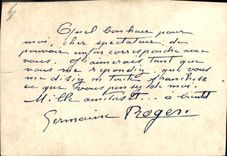 Quel bonheur pour
moi, cher spectateur, de
pouvoir enfin correspondre avec
vous. J'aimerais tant que
vous me répondiez, que vous
me disiez en toute franchise
ce que vous pensez de moi.
Mille amitiés... à bientôt
Germaine Roger.